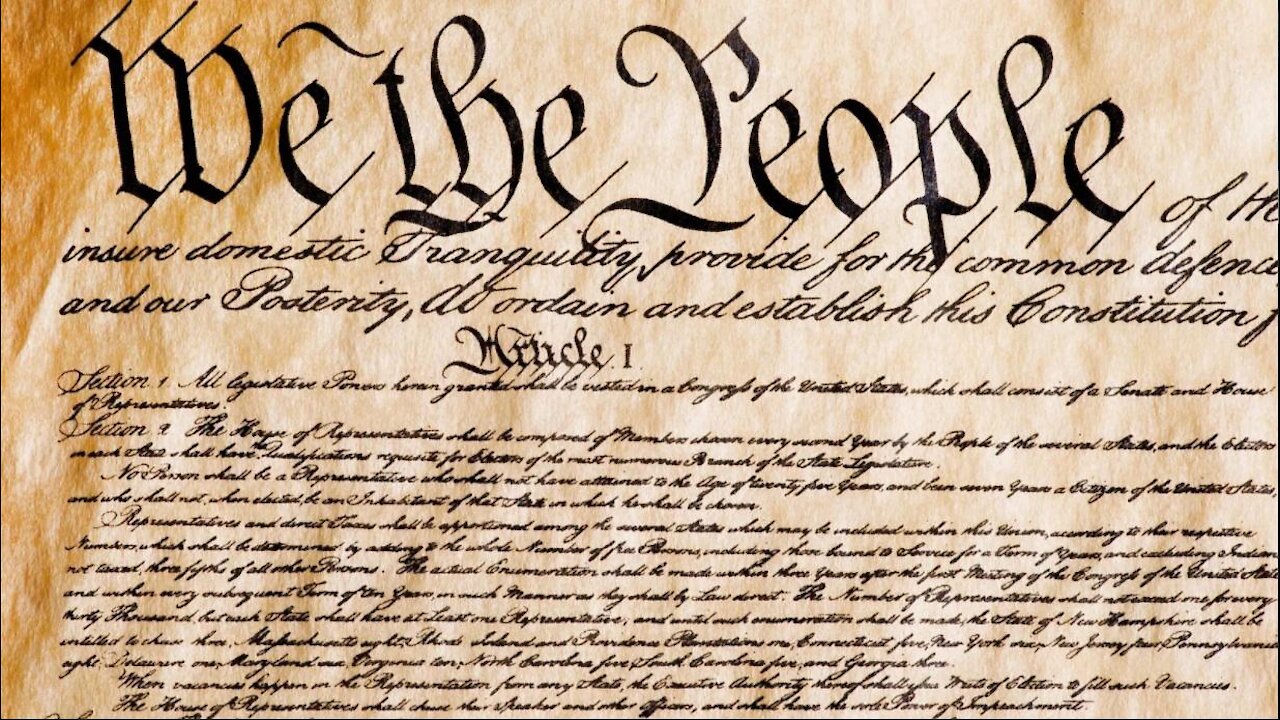 We the People of the
insure domestic Tranquility, provide for the common defence
and our Posterity, do ordain and establish this Constitution f
Article. I.
Section. 1 All legislative Powers herein granted shall be vested in a Congress of the United States, which shall consist of a Senate and House
of Representatives.
Section. 2 The House of Representatives shall be composed of Members chosen every second Year by the People of the several States, and the Electors
in each State shall have Qualifications requisite for Electors of the most numerous Branch of the State Legislature.
No Person shall be a Representative who shall not have attained to the Age of twenty five Years, and been seven Years a Citizen of the United States,
and who shall not, when elected, be an Inhabitant of that State in which he shall be chosen.
Representatives and direct Taxes shall be apportioned among the several States which may be included within this Union, according to their respective
Numbers, which shall be determined by adding to the whole Number of free Persons, including those bound to Service for a Term of Years, and excluding Indians
not taxed, three fifths of all other Persons. The actual Enumeration shall be made within three Years after the first Meeting of the Congress of the United States
and within every subsequent Term of ten Years, in such Manner as they shall by Law direct. The Number of Representatives shall not exceed one for every
thirty Thousand, but each State shall have at Least one Representative; and until such enumeration shall be made, the State of New Hampshire shall be
entitled to chuse three, Massachusetts eight, Rhode Island and Providence Plantations one, Connecticut five, New York six, New Jersey four, Pennsylvania
eight, Delaware one, Maryland six, Virginia ten, North Carolina five, South Carolina five, and Georgia three.
When vacancies happen in the Representation from any State, the Executive Authority thereof shall issue Writs of Election to fill such Vacancies.
The House of Representatives shall chuse their Speaker and other Officers; and shall have the sole Power of Impeachment.